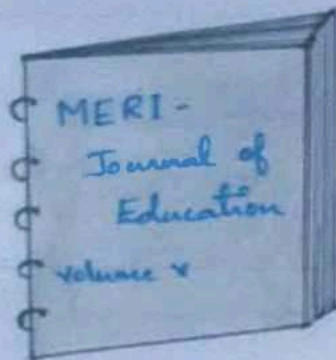 MERI-
Journal of
Education
volume x